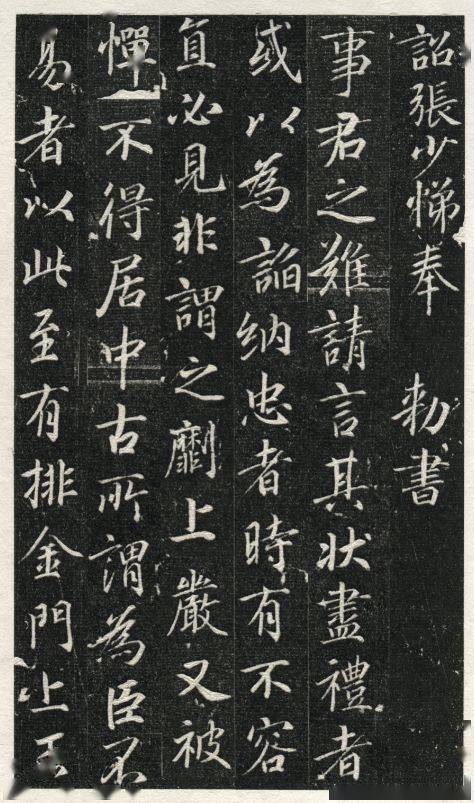 詔張少悌奉 勅書
事君之難請言其狀盡禮者
或以為諂納忠者時有不容
直必見非謂之劘上嚴又被
憚不得居中古所謂為臣不
易者以此至有排金門上玉